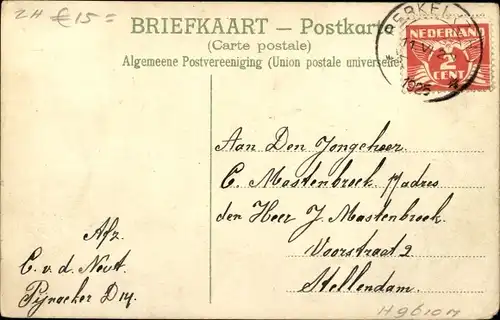 2H €15=
BRIEFKAART — Postkarte
(Carte postale)
Algemeene Postvereeniging (Union postale universelle)
NEDERLAND
2
CENT
1925
Aan Den Jongeheer
C. Mastenbroek p/adres
den Heer J. Mastenbroek
Voorstraat 2
Stellendam.
Afz.
C. v. d. Nevt.
Pijnacker D 14.
H9610M